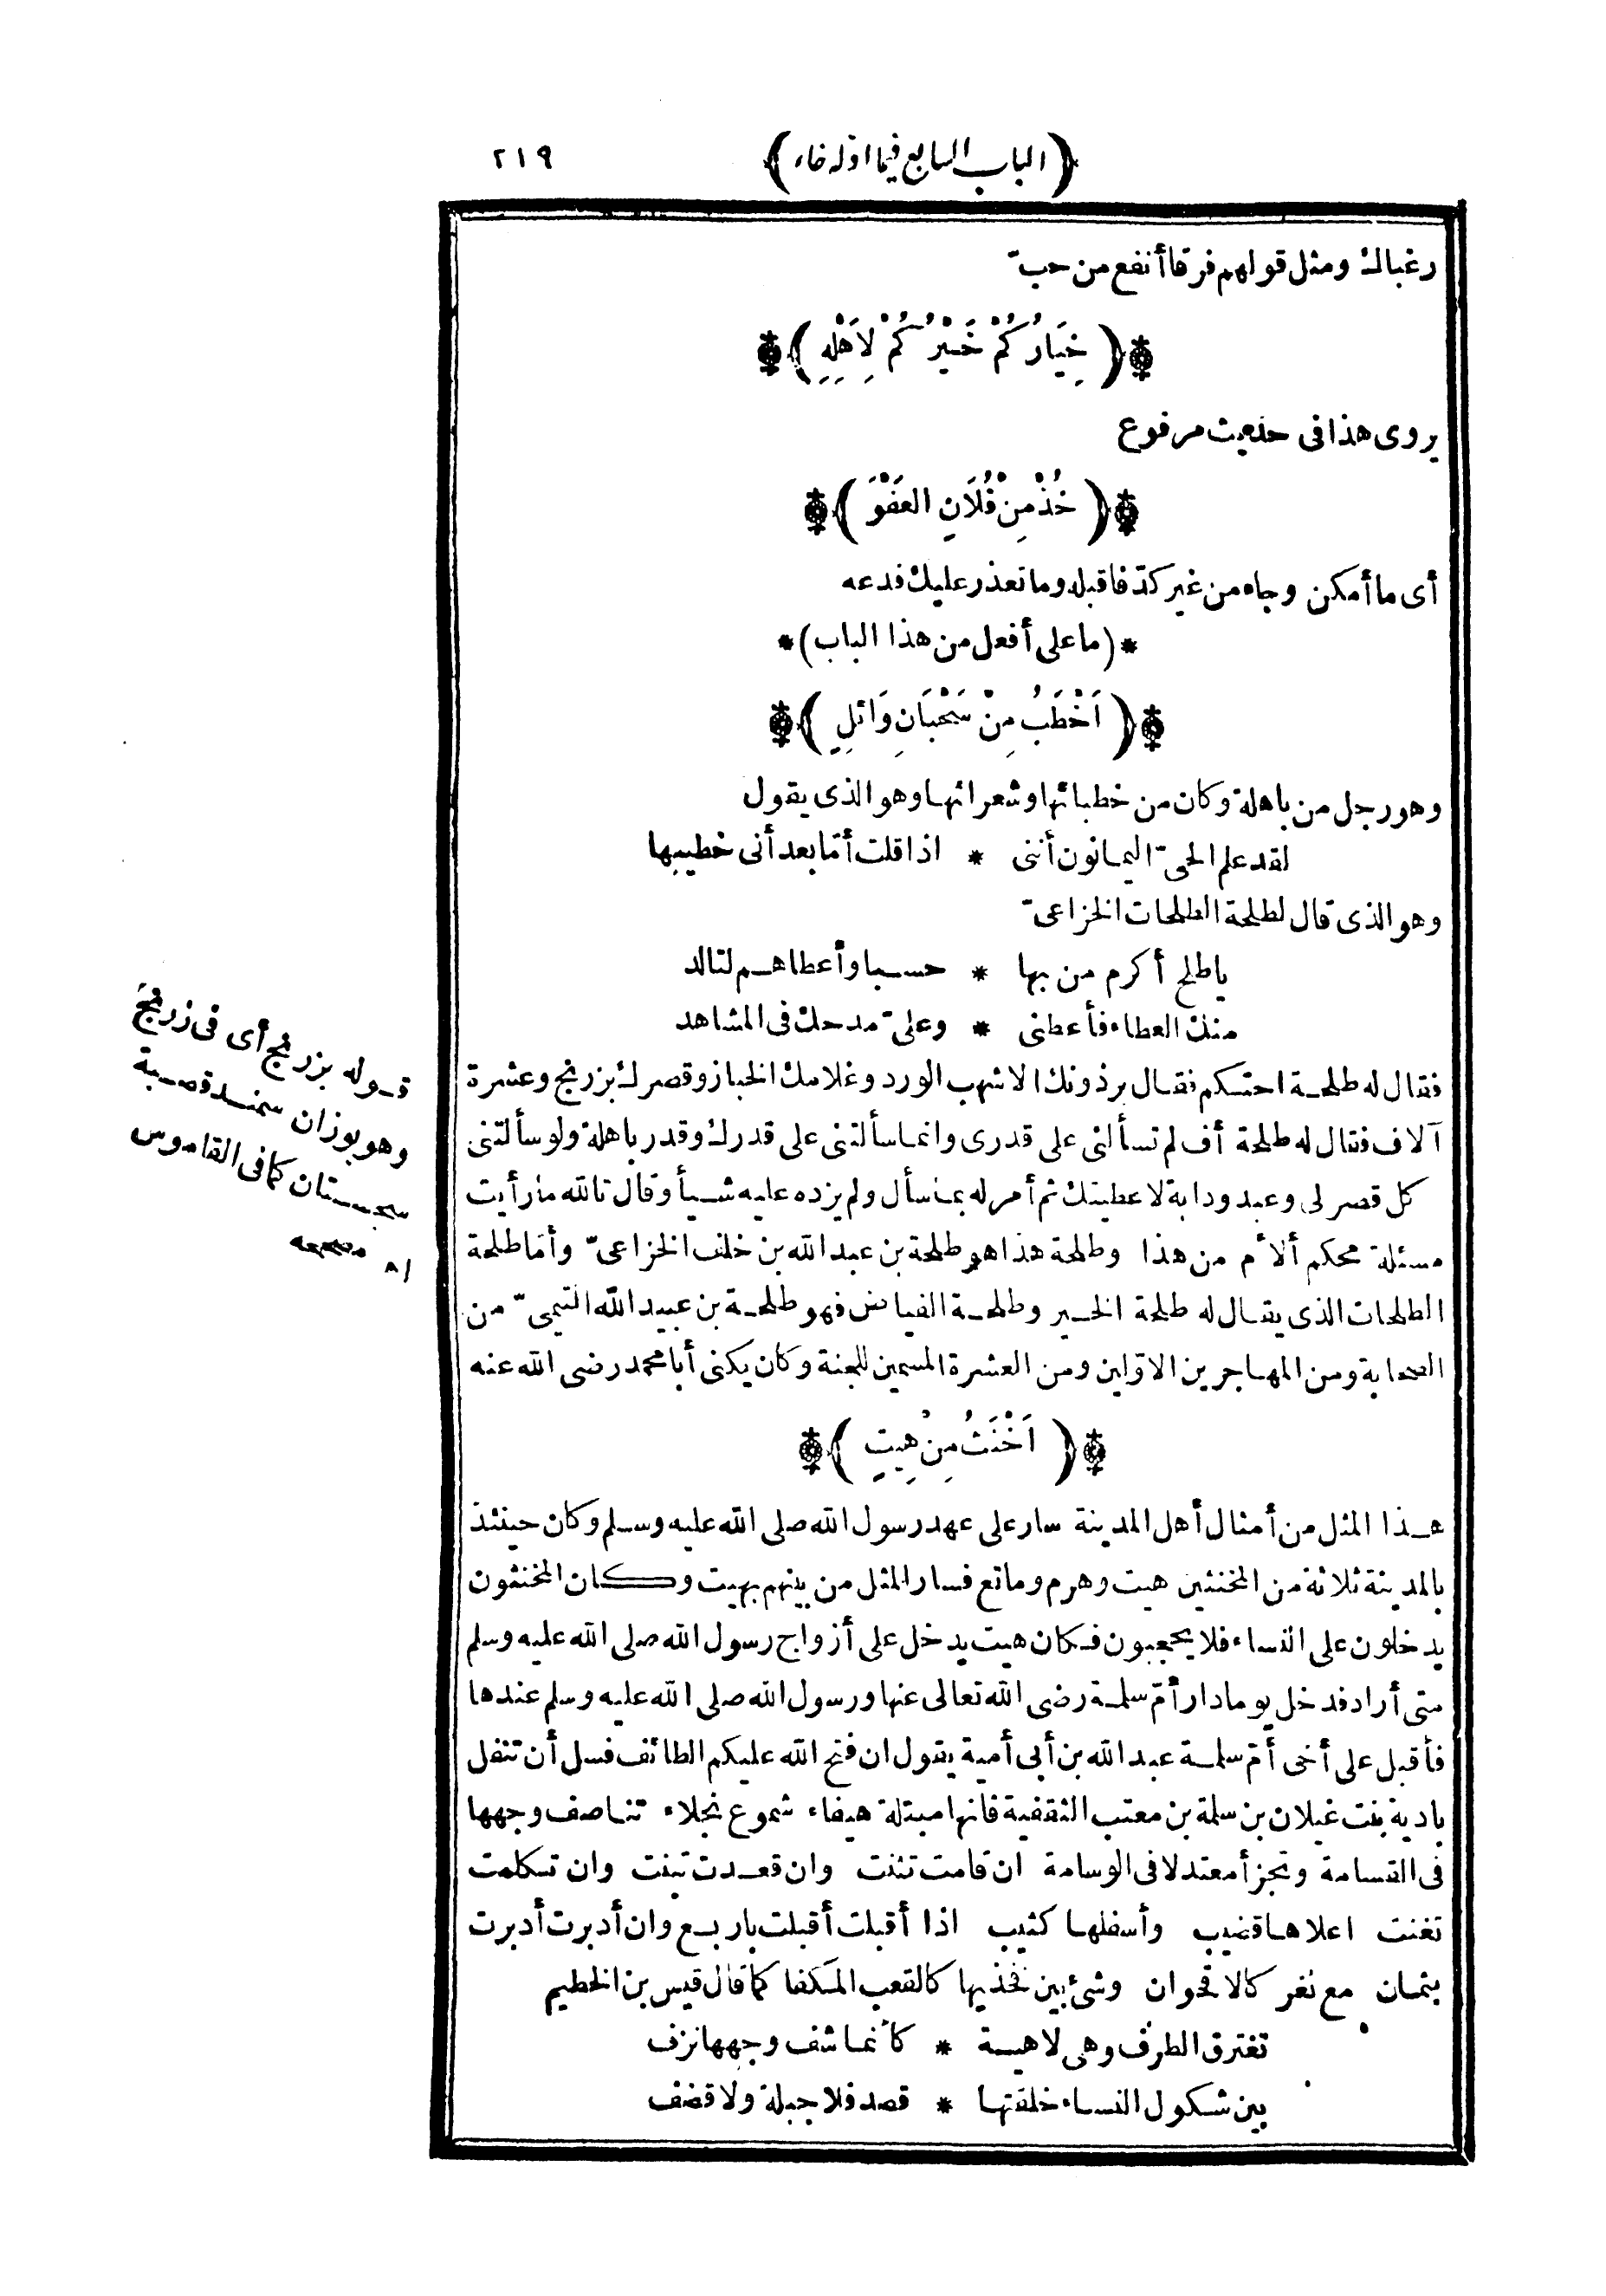 (الباب السابع فيما اوّله خاء) ٢١٩
رغبالك ومثل قولهم فرقا أنفع من حبّ
(خِيَارُكُمْ خَيْرُكُمْ لِاَهْلِهِ)
يروى هذا فى حديث مرفوع
(خُذْ مِنْ فُلَانِ العَفْوَ)
أى ما أمكن وجاء من غير كدّ فاقبله وما تعذر عليك فدعه
*(ما على أفعل من هذا الباب)*
(اَخْطَبُ مِنْ سَحْبَانِ وَائلِ)
وهو رجل من باهلة وكان من خطبائها وشعرائها وهو الذى يقول
لقد علم الحىّ اليمانون أننى * اذا قلت أمّا بعد أنى خطيبها
وهو الذى قال لطلحة الطلحات الخزاعىّ
ياطلح أكرم من بها * حسبا وأعطاهم لتالد
منك العطاء فأعطنى * وعلىّ مدحك فى المشاهد
فقال له طلحة احتكم فقال برذونك الاشهب الورد وغلامك الخباز وقصرك بزرنج وعشرة
آلاف فقال له طلحة أف لم تسألنى على قدرى وانما سألتنى على قدرك وقدر باهلة ولو سألتنى
كل قصر لى وعبد ودابة لاعطيتك ثم أمر له بما سأل ولم يزده عليه شيأ وقال تالله ما رأيت
مسئلة محكم ألأم من هذا وطلحة هذا هو طلحة بن عبد الله بن خلف الخزاعىّ وأمّا طلحة
الطلحات الذى يقال له طلحة الخير وطلحة الفياض فهو طلحة بن عبيد الله التيمىّ من
الصحابة ومن المهاجرين الاوّلين ومن العشرة المسمين للجنة وكان يكنى أبا محمد رضى الله عنه
(اَخْنَثُ مِنْ هِيتٍ)
هذا المثل من أمثال أهل المدينة سار على عهد رسول الله صلى الله عليه وسلم وكان حينئذ
بالمدينة ثلاثة من المخنثين هيت وهرم وماتع فسار المثل من بينهم بهيت وكان المخنثون
يدخلون على النساء فلا يحجبون فكان هيت يدخل على أزواج رسول الله صلى الله عليه وسلم
متى أراد فدخل يوما دار أمّ سلمة رضى الله تعالى عنها ورسول الله صلى الله عليه وسلم عندها
فأقبل على أخى أمّ سلمة عبد الله بن أبى أمية يقول ان فتح الله عليكم الطائف فسل أن تنفل
بادية بنت غيلان بن سلمة بن معتب الثقفية فانها مبتلة هيفاء شموع نجلاء تناصف وجهها
فى القسامة وتجزأ معتدلا فى الوسامة ان قامت تثنت وان قعدت تبنت وان تكلمت
تغنت اعلاها قضيب وأسفلها كثيب اذا أقبلت أقبلت باربع وان أدبرت أدبرت
بثمان مع ثغر كالاقحوان وشئ بين فخذيها كالقعب المكفا كما قال قيس بن الخطيم
تغترق الطرف وهى لاهية * كأنما شف وجهها نزف
بين شكول النساء خلقتها * قصد فلا جبلة ولا قضف
قوله بزرنج أى فى زرنج
وهو بوزان سمند قصبة
سجستان كما فى القاموس
اه مصححه